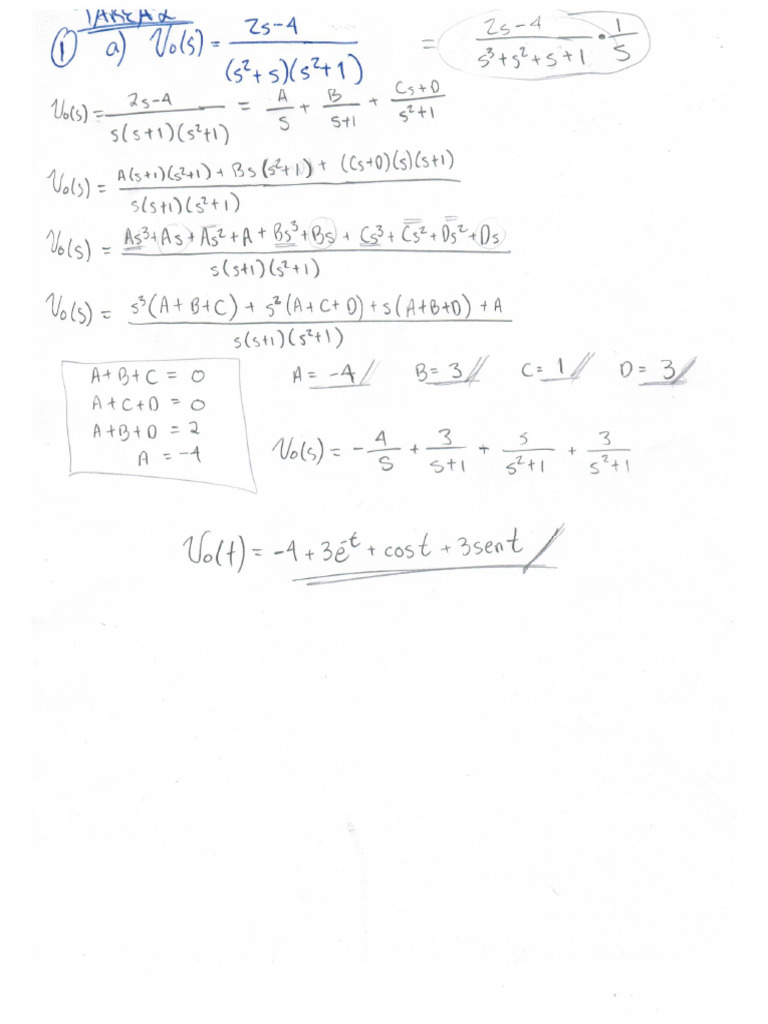 TAREA 2
① a) V₀(s) = 2s-4 / (s²+s)(s²+1) = 2s-4 / s³+s²+s+1 · 1/s
V₀(s) = 2s-4 / s(s+1)(s²+1) = A/s + B/s+1 + Cs+D / s²+1
V₀(s) = A(s+1)(s²+1) + Bs(s²+1) + (Cs+D)(s)(s+1) / s(s+1)(s²+1)
V₀(s) = As³+As+As²+A+Bs³+Bs+Cs³+Cs²+Ds²+Ds / s(s+1)(s²+1)
V₀(s) = s³(A+B+C) + s²(A+C+D) + s(A+B+D) + A / s(s+1)(s²+1)
A+B+C = 0
A+C+D = 0
A+B+D = 2
A = -4
A = -4 B = 3 C = 1 D = 3
V₀(s) = -4/s + 3/s+1 + s/s²+1 + 3/s²+1
V₀(t) = -4 + 3e⁻ᵗ + cost + 3sent